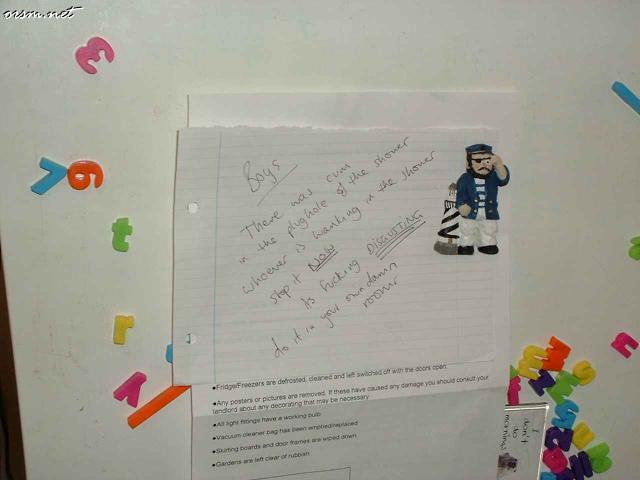 oism.net
Boys
There was cum
in the plughole of the shower
whoever is wanking in the shower
stop it NOW
its fucking DISGUSTING
do it in your own damn
rooms
•Fridge/Freezers are defrosted, cleaned and left switched off with the doors open.
•Any posters or pictures are removed. If these have caused any damage you should consult your
landlord about any decorating that may be necessary
•All light fittings have a working bulb
•Vacuum cleaner bag has been emptied/replaced
•Skirting boards and door frames are wiped down
•Gardens are left clear of rubbish
I
don't
do
mornings